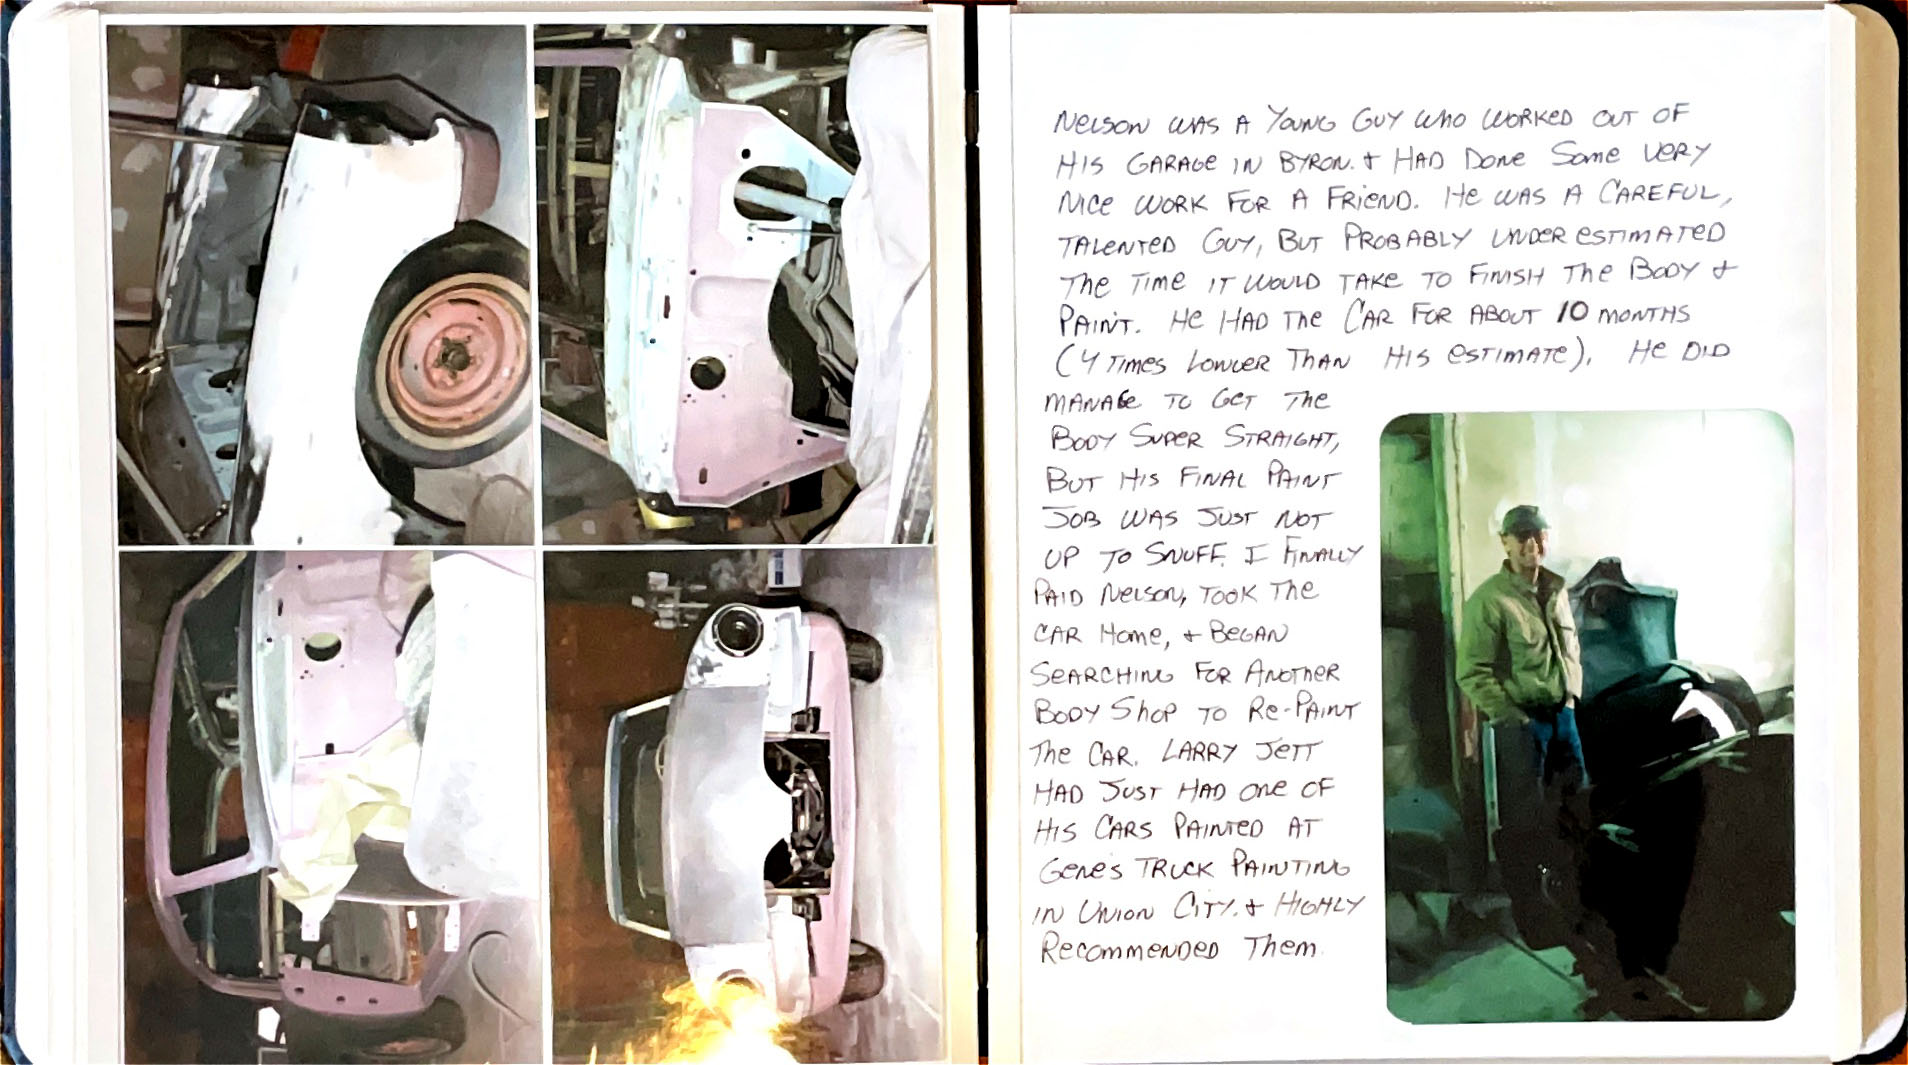 NELSON WAS A YOUNG GUY WHO WORKED OUT OF
HIS GARAGE IN BYRON. & HAD DONE SOME VERY
NICE WORK FOR A FRIEND. HE WAS A CAREFUL,
TALENTED GUY, BUT PROBABLY UNDERESTIMATED
THE TIME IT WOULD TAKE TO FINISH THE BODY &
PAINT. HE HAD THE CAR FOR ABOUT 10 MONTHS
(4 TIMES LONGER THAN HIS ESTIMATE). HE DID
MANAGE TO GET THE
BODY SUPER STRAIGHT,
BUT HIS FINAL PAINT
JOB WAS JUST NOT
UP TO SNUFF. I FINALLY
PAID NELSON, TOOK THE
CAR HOME, & BEGAN
SEARCHING FOR ANOTHER
BODY SHOP TO RE-PAINT
THE CAR. LARRY JETT
HAD JUST HAD ONE OF
HIS CARS PAINTED AT
GENE'S TRUCK PAINTING
IN UNION CITY. & HIGHLY
RECOMMENDED THEM.